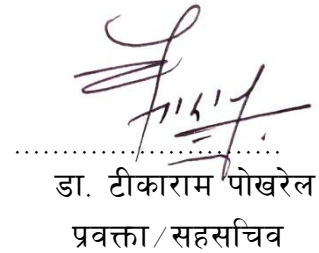 ............................
डा. टीकाराम पोखरेल
प्रवक्ता/सहसचिव